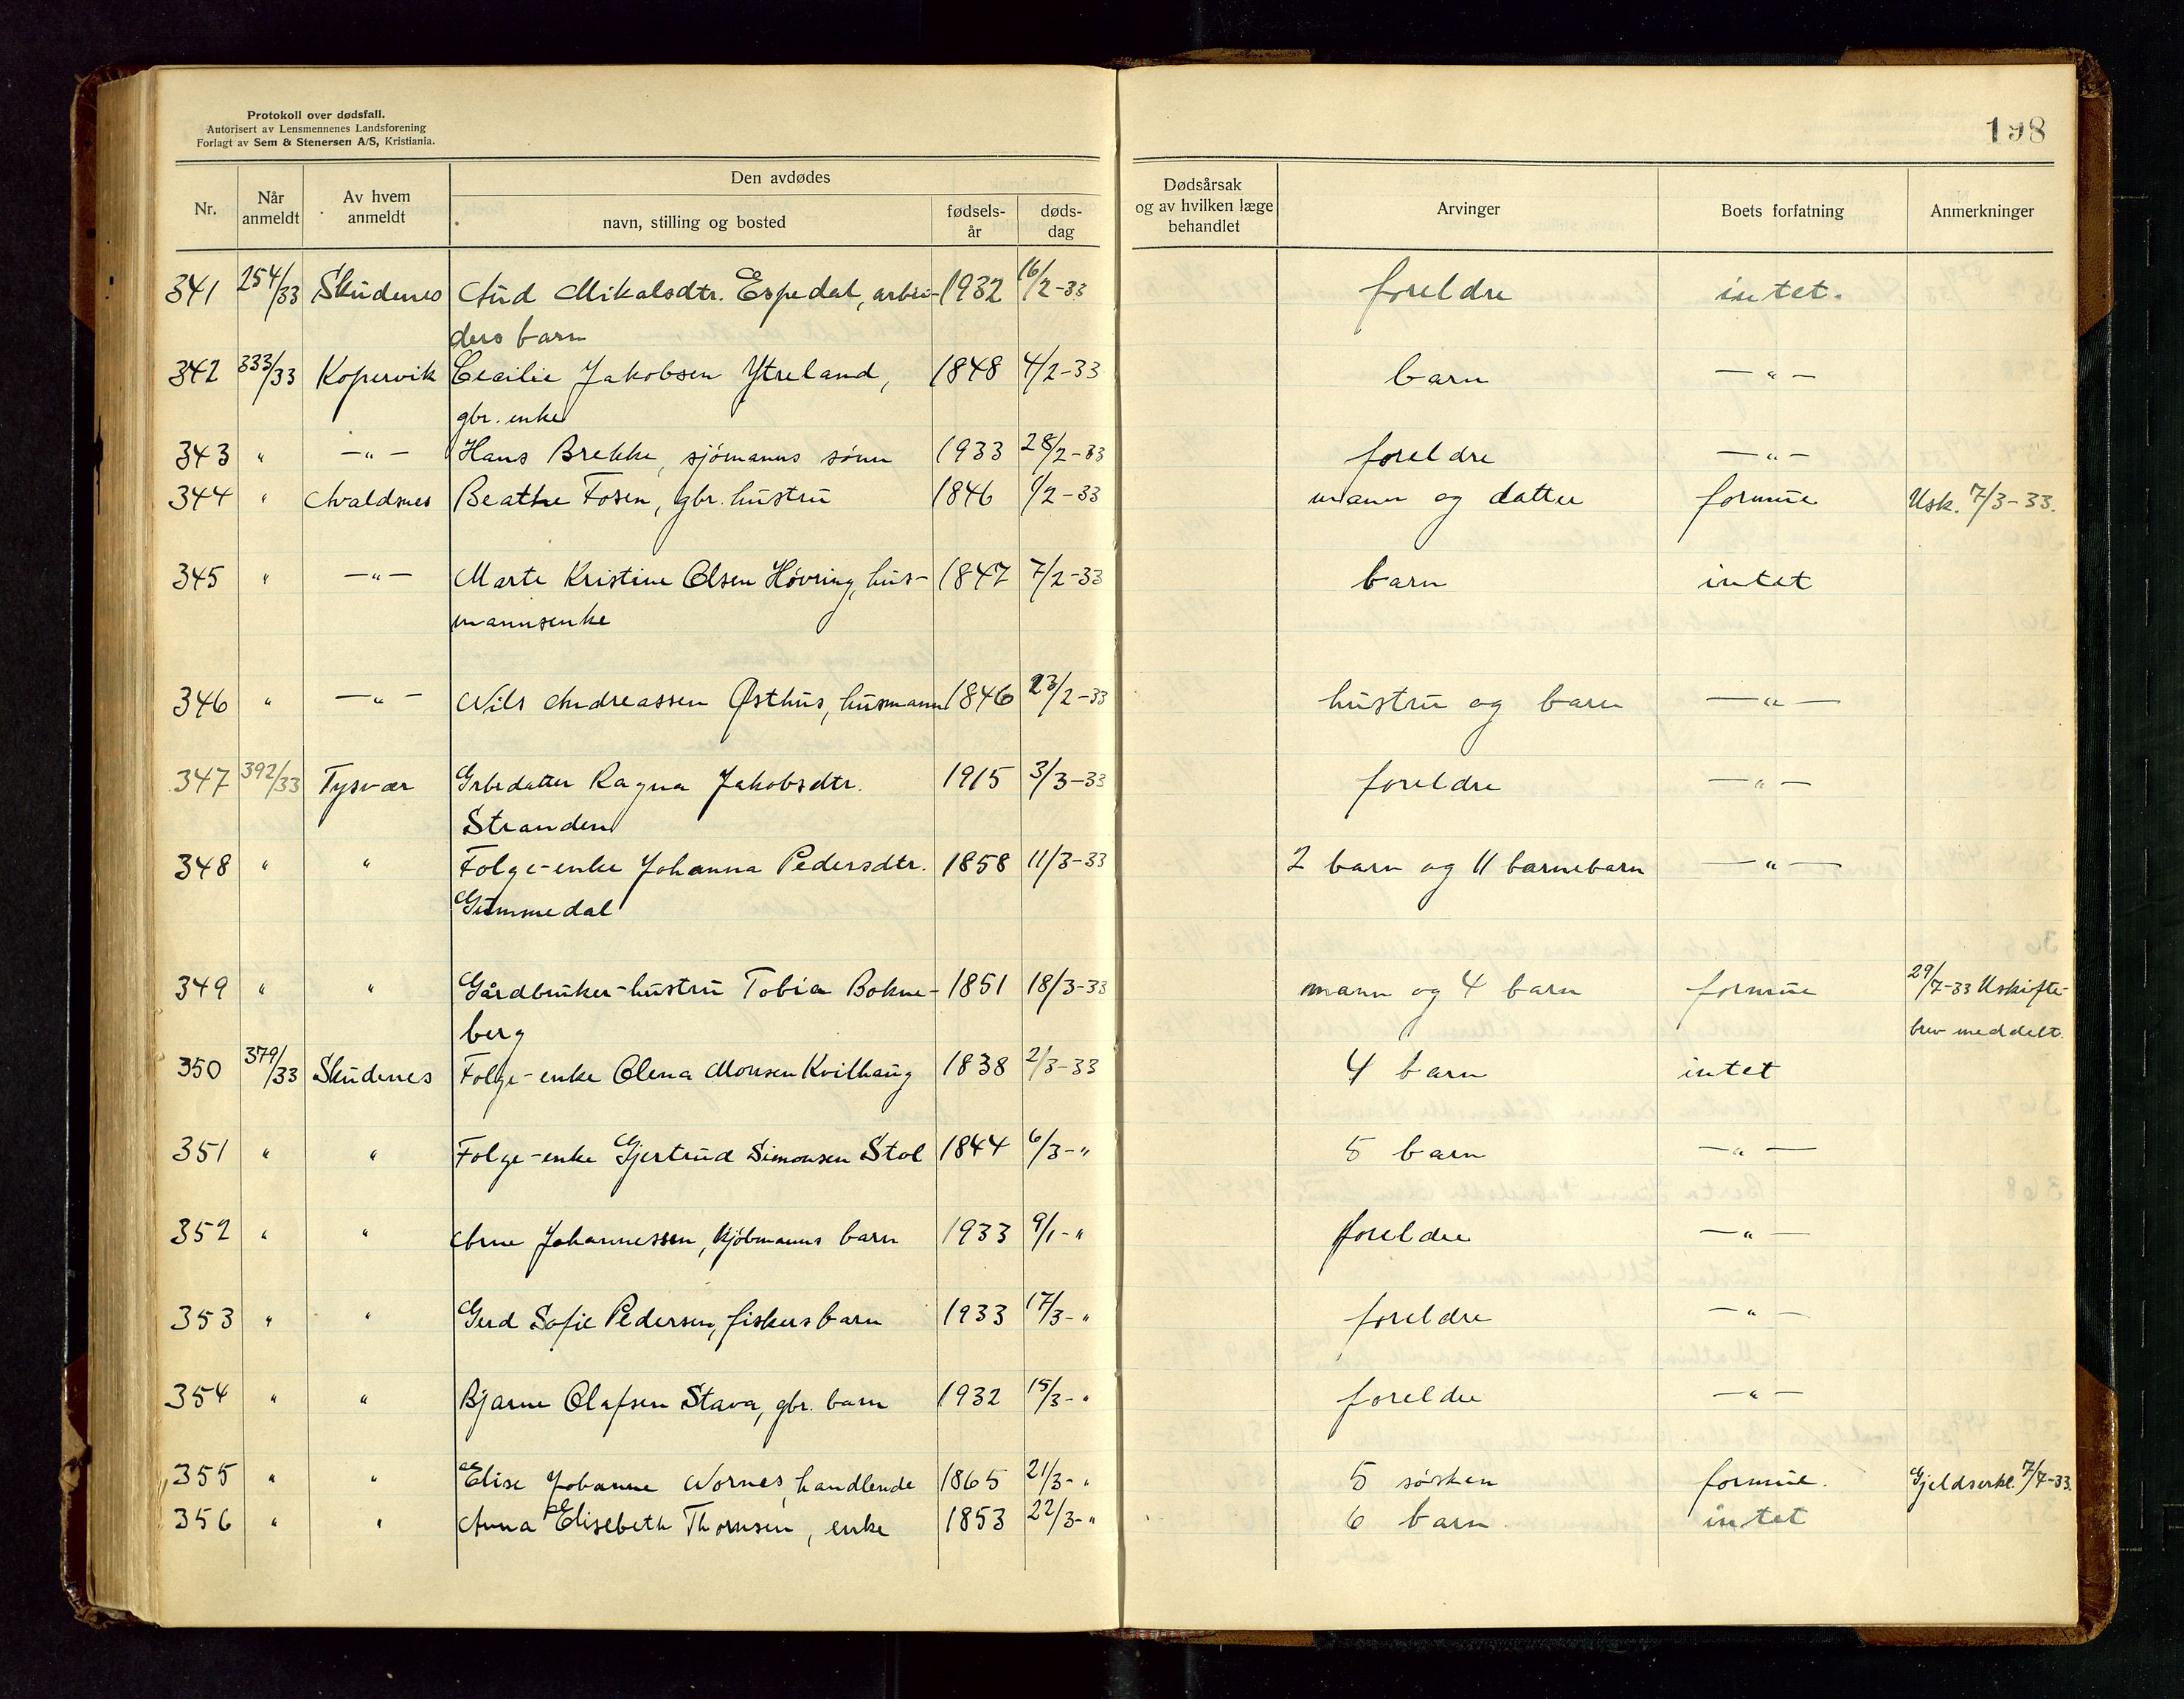 Protokoll over dødsfall.
Autorisert av Lensmennenes Landsforening
Forlagt av Sem & Stenersen A/S, Kristiania.
198
Nr. Når anmeldt Av hvem anmeldt Den avdødes navn, stilling og bosted fødsels-år døds-dag Dødsårsak og av hvilken læge behandlet Arvinger Boets forfatning Anmerkninger
341 254/33 Skudenes Aud Mikalsdtr. Espedal, arbei- 1932 16/2-33 foreldre intet.
ders barn
342 333/33 Kopervik Cecilie Jakobsen Ytreland, 1848 4/2-33 barn —"—
gbr. enke
343 " —"— Hans Brekke, sjömanns sönn 1933 28/2-33 foreldre —"—
344 " Avaldsnes Beathe Fosen, gbr. hustru 1846 1/2-33 mann og datter formue Usk. 7/3-33.
345 " —"— Marte Kristine Olsen Hövring, hus- 1847 7/2-33 barn intet
mannsenke
346 " —"— Nils Andreassen Østhus, husmann 1846 23/2-33 hustru og barn —"—
347 392/33 Tysvær Grbrdatter Ragna Jakobsdtr. 1915 3/3-33 foreldre —"—
Stranden
348 " " Folge-enke Johanna Pedersdtr. 1858 11/3-33 2 barn og 11 barnebarn —"—
Grimmedal
349 " " Gårdbruker-hustru Tobia Bokne- 1851 18/3-33 mann og 4 barn formue 29/7-33 Uskifte-
berg brev meddelt.
350 379/33 Skudenes Folge-enke Olena Monsen Kvilhaug 1838 2/3-33 4 barn intet
351 " " Folge-enke Gjertrud Simonsen Stol 1844 6/3-" 5 barn —"—
352 " " Arne Johannessen, kjöbmanns barn 1933 9/1-" foreldre —"—
353 " " Gerd Sofie Pedersen, fiskers barn 1933 17/3-" foreldre —"—
354 " " Bjarne Olafsen Stava, gbr. barn 1932 15/3-" foreldre —"—
355 " " Elise Johanne Nornes, handlende 1865 21/3-" 5 söskен formue. Gjeldserkl. 7/7-33.
356 " " Anna Elisebeth Thornsen, enke 1853 22/3-" 6 barn intet